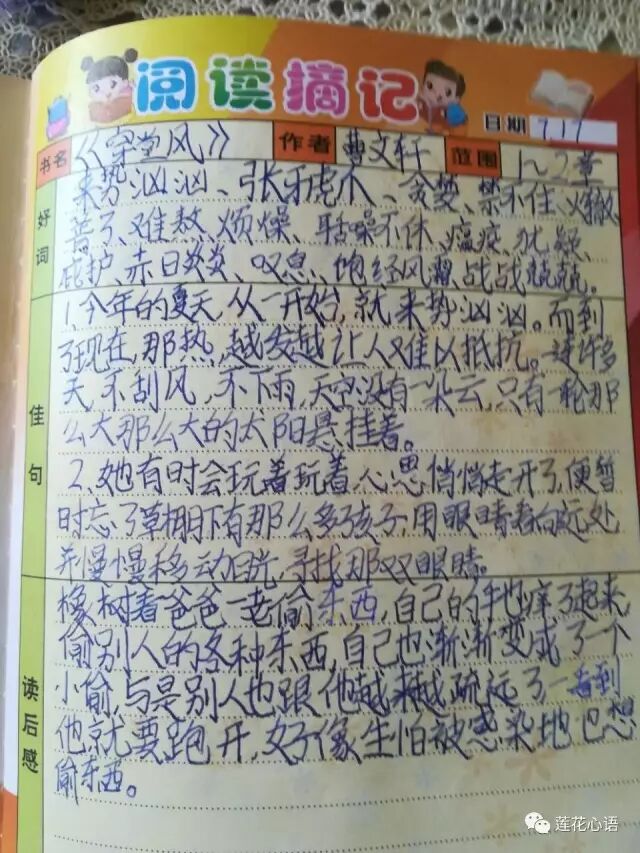 阅读摘记
日期 7.17
书名 《穿堂风》 作者 曹文轩 范围 1~2章
好词
来势汹汹、张牙虎爪、贪婪、禁不住、义撤、
难熬、烦燥、聒噪不休、瘟疫、犹疑、
庇护、赤日炎炎、叹息、饱经风霜、战战兢兢。
佳句
1、今年的夏天,从一开始,就来势汹汹。而到
了现在,那热,越发越让人难以抵抗。一连许多
天,不刮风,不下雨,天空没有一朵云,只有一轮那
么大那么大的太阳悬挂着。
2、她有时会玩着玩着,心思悄悄走开了,便暂
时忘了草棚下有那么多孩子,用眼睛看向远处
并慢慢移动目光,寻找那双眼睛。
读后感
橡树看爸爸一老偷东西,自己的手也痒了起来,
偷别人的各种东西,自己也渐渐变成了一个
小偷,与是别人也跟他越来越疏远了一看到
他就要跑开,好像生怕被感染地也想
偷东西。
莲花心语